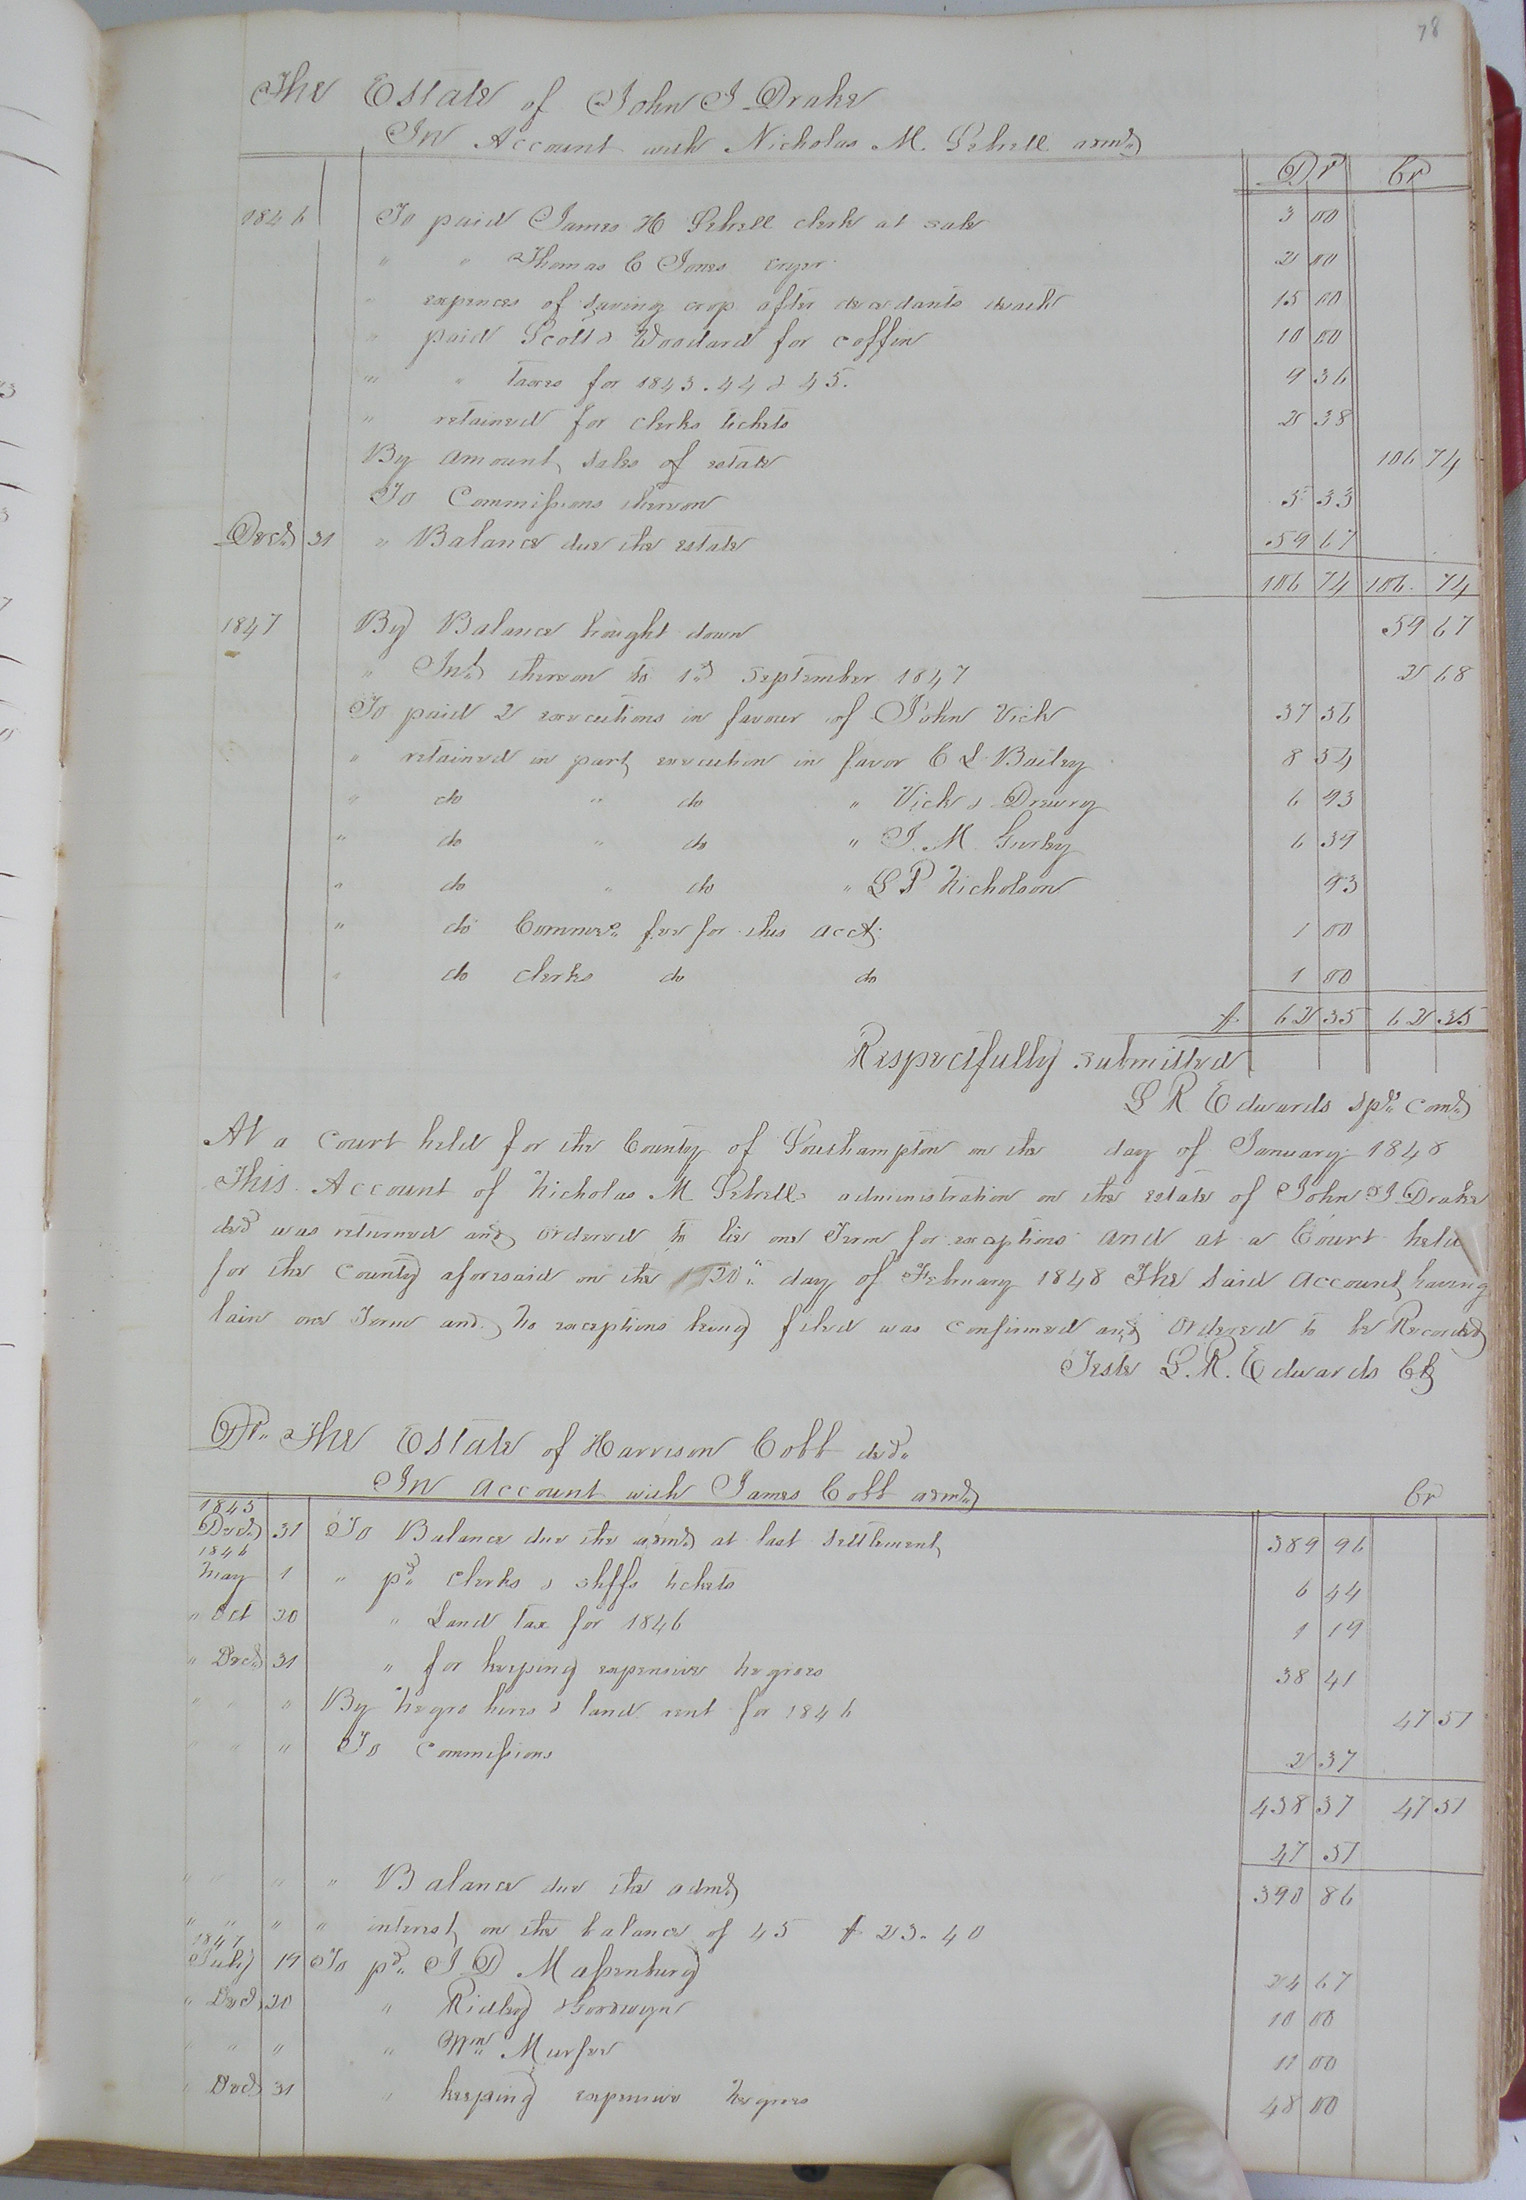 78
The Estate of John J Drake
In Account with Nicholas M. Sebrell admr
Dr Cr
1846 To paid James H Sebrell clerk at sale 3 00
" " Thomas C Jones cryer 2 00
" expences of saving crop after decedants death 15 00
" paid Scott & Woodard for coffin 10 00
" " taxes for 1843. 44 & 45. 9 36
" retained for clerks tickets 2 38
By amount sales of estate 106 74
To Commissions thereon 5 33
Decr 31 " Balance due the estate 59 67
106 74 106. 74
1847 By Balance brought down 59 67
" Int thereon to 1st September 1847 2 68
To paid 2 executions in favour of John Vick 37 56
" retained in part execution in favor C L Bailey 8 54
" do " do " Vick & Drewry 6 93
" do " do " J. M. Gurley 6 39
" do " do " L P Nicholson 93
" do Commrs fee for this acct. 1 00
" do clerks do do 1 00
$ 62 35 62 35
Respectfully submitted
L R Edwards spl comr
At a court held for the County of Southampton on the day of January 1848
This Account of Nicholas M Sebrells administration on the estate of John J Drake
decd was returned and ordered to lie one Term for exceptions and at a Court held
for the County aforesaid on the 20th day of February 1848 The said Account having
lain one Term and no exceptions being filed was confirmed and Ordered to be Recorded
Teste L. R. Edwards Clk
Dr. The Estate of Harrison Cobb decd.
In account with James Cobb admr
Cr
1845
Decr 31 To Balance due the admr at last settlement 389 96
1846
May 1 " pd clerks & shffs tickets 6 44
" Oct 20 " Land tax for 1846 1 19
" Decr 31 " for keeping expensive negroes 38 41
" " " By negro hires & land rent for 1846 47 51
" " " To commissions 2 37
438 37 47 51
47 51
" " " " Balance due the admr 390 86
" " " " interest on the balance of 45 $ 23. 40
1847
July 19 To pd. J D Massenburg 24 67
" Decr 20 " Ridley & Goodwyn 10 00
" " " " Wm Murfee 11 00
" Decr 31 " keeping expensive negroes 48 00